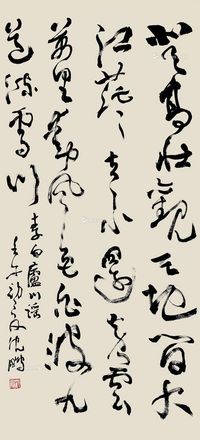 登高壮观天地间大
江茫茫去不還黄雲
萬里動風色白波九
道流雪山
李白廬山謠
沈鵬